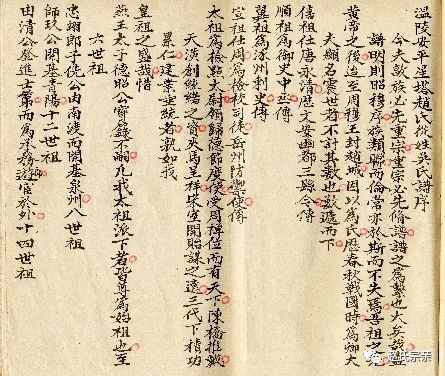 溫陵安平星塔趙氏從姓吳氏譜序
今夫敦族必先重宗重宗必先脩譜譜之為繫也大矣哉蓋
譜明則昭穆序族類聯而倫常亦於斯而不失焉吾祖之先
黃帝之後造至周穆王封趙城因以為氏歷春秋戰國時為卿大
夫顯名震世者不計其數也遞而下
僖祖任唐永清歷文安幽都三縣令傳
順祖為御史中丞傳
翼祖為涿州刺史傳
宣祖任周為檢校司徒岳州防禦使傳
太祖為檢點太尉領歸德節度使受周禪位而有天下陳橋推戴
天漢創統緒之夾馬呈祥室開貽謀之遠三代下積功
累仁建業垂統者孰如我
皇祖之盛哉惜
燕王太子德昭公實錄不嗣凡我太祖派下者皆尊為始祖也至
六世祖
忠翊郎子侁公由南渡而開基泉州八世祖
師玖公開基晉陽十二世祖
由清公登進士第而為承務遊宦於外十四世祖
赵氏宗亲